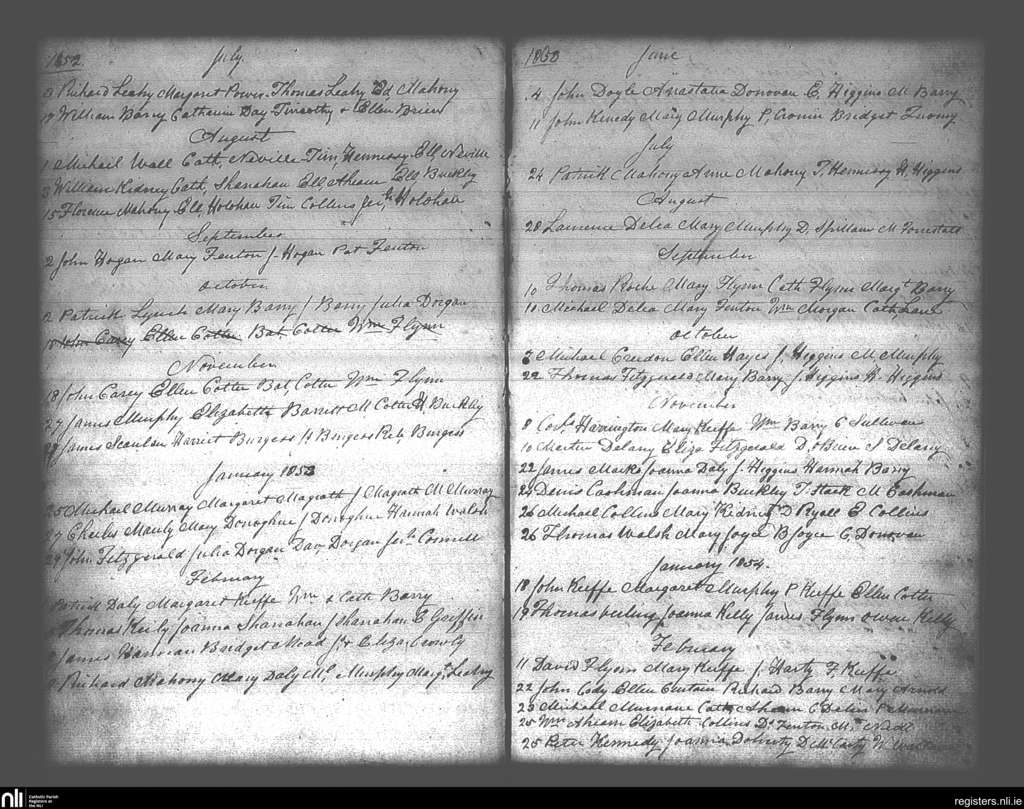 1852 July
Richard Leahy Margaret Power Thomas Leahy Ed Mahony
William Barry Catherine Day Timothy & Ellen Brien
August
1 Michael Wall Cath. Neville Tim Hennessy Ell. Neville
3 William Kidney Cath. Shanahan Ell. Aheam Ell. Buckley
15 Florence Mahony Ell. Holohan Tim Collins Holohan
September
2 John Hogan Mary Fenton J. Hogan Pat Fenton
October
2 Patrick Lynch Mary Barry J Barry Julia Dorgan
18 John Casey Ellen Cotter Bat. Cotter Wm Flynn
November
18 John Casey Ellen Cotter Bat. Cotter Wm Flynn
27 James Murphy Elizabeth Barrett M Cotter H. Buckley
James Scanlan Harriet Burgess H Burgess Burgess
January 1853
25 Michael Murray Margaret Magrath J Magrath M Murray
27 Charles Manly Mary Donoghue J Donoghue Hannah Walsh
29 John Fitzgerald Julia Dorgan Dav. Dorgan
February
Patrick Daly Margaret Keeffe Wm & Cath Barry
Thomas Keily Joanna Shanahan J Shanahan E Griffin
James Bridget Mead J & Eliza Crowly
Richard Mahony Mary Daly Ml Murphy Margt Leahy
1853 June
4 John Doyle Anastatia Donovan E. Higgins M Barry
11 John Kenedy Mary Murphy P. Cronin Bridget Twomy
July
24 Patrick Mahony Anne Mahony T. Hennessy H. Higgins
August
20 Laurence Delea Mary Murphy D. Spillane M
September
10 Thomas Roche Mary Flynn Cath Flynn Margt Barry
10 Michael Delea Mary Fenton Wm Morgan Cath Lane
October
3 Michael Creedon Ellen Hayes J. Higgins M. Murphy
22 Thomas Fitzgerald Mary Barry J. Higgins H. Higgins
November
8 Cors. Harrington Mary Keeffe Wm Barry C Sullivan
10 Martin Delany Eliza Fitzgerald D. OBrien J Delany
22 James Marks Joanna Daly J. Higgins Hannah Barry
24 Denis Cashman Joanna Buckley T. Stack M Cashman
26 Michael Collins Mary Kidney D Ryall E Collins
26 Thomas Walsh Mary Joyce B Joyce C. Donovan
January 1854.
18 John Keeffe Margaret Murphy P Keeffe Ellen Cotter
19 Thomas Joanna Kelly James Flynn Owen Kelly
February
11 David Flynn Mary Keeffe J. Harty F. Keeffe
22 John Cody Ellen Richard Barry Mary Arnold
25 Michael Murnane Cath. C Delea P Murnane
25 Wm Aheam Elizabeth Collins D. Fenton M.
25 Peter Kennedy Joanna Doherty D McCarty
nli Catholic Parish Registers at the NLI
registers.nli.ie